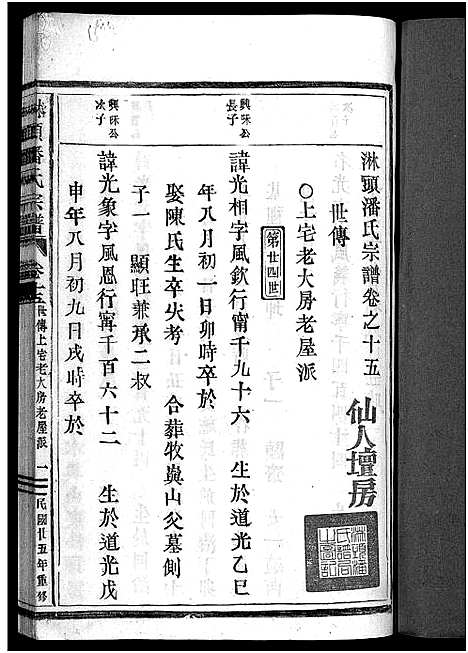 淋頭潘氏宗譜卷之十五
仙人壇房
世傳
〇上宅老大房老屋派
第廿四世
興咊公
長子
諱光相字風欽行甯千九十六 生於道光乙巳
年八月初一日卯時卒於
娶陳氏生卒失考 合葬牧與山父墓側
子一 字顯旺兼承二叔
興咊公
次子
諱光象字風恩行甯千百六十二 生於道光戊
申年八月初九日戌時卒於
淋頭潘氏宗譜
卷十五 世傳上宅老大房老屋派 一 民國廿五年重修